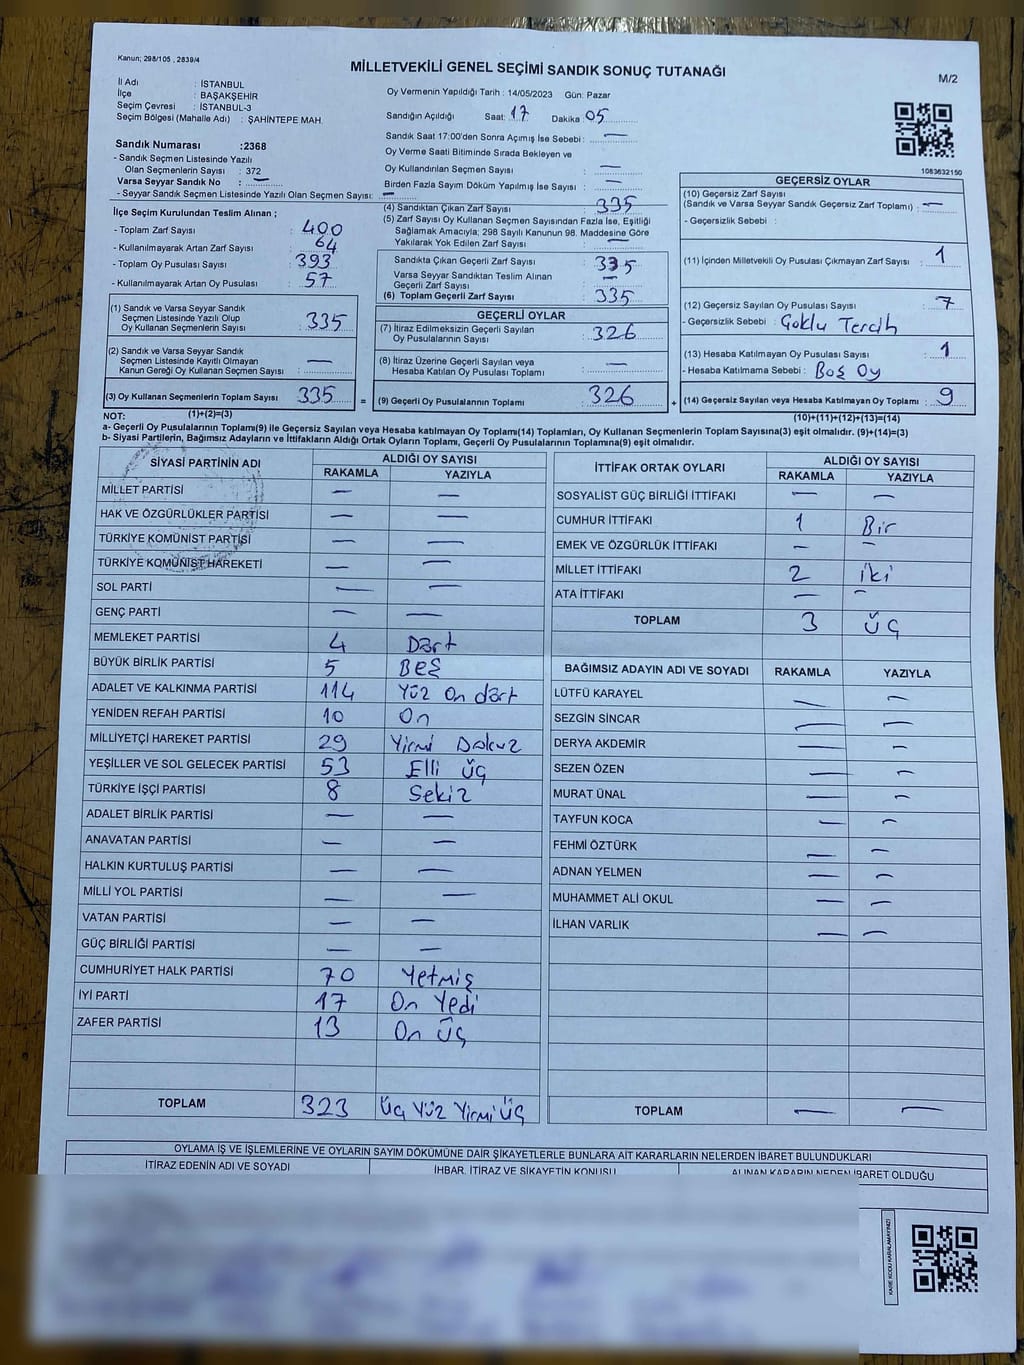 Kanun; 298/105 , 2839/4
MİLLETVEKİLİ GENEL SEÇİMİ SANDIK SONUÇ TUTANAĞI
M/2
İl Adı : İSTANBUL
İlçe : BAŞAKŞEHİR
Seçim Çevresi : İSTANBUL-3
Seçim Bölgesi (Mahalle Adı) : ŞAHİNTEPE MAH.
Oy Vermenin Yapıldığı Tarih : 14/05/2023 Gün: Pazar
Sandığın Açıldığı Saat: 17 Dakika 05
Sandık Saat 17:00'den Sonra Açılmış İse Sebebi : —
Oy Verme Saati Bitiminde Sırada Bekleyen ve
Oy Kullandırılan Seçmen Sayısı : —
Birden Fazla Sayım Döküm Yapılmış İse Sayısı : —
1083632150
Sandık Numarası :2368
- Sandık Seçmen Listesinde Yazılı
Olan Seçmenlerin Sayısı : 372
Varsa Seyyar Sandık No : —
- Seyyar Sandık Seçmen Listesinde Yazılı Olan Seçmen Sayısı: —
İlçe Seçim Kurulundan Teslim Alınan ;
- Toplam Zarf Sayısı : 400
- Kullanılmayarak Artan Zarf Sayısı : 64
- Toplam Oy Pusulası Sayısı : 393
- Kullanılmayarak Artan Oy Pusulası : 57
(1) Sandık ve Varsa Seyyar Sandık
Seçmen Listesinde Yazılı Olup
Oy Kullanan Seçmenlerin Sayısı : 335
(2) Sandık ve Varsa Seyyar Sandık
Seçmen Listesinde Kayıtlı Olmayan
Kanun Gereği Oy Kullanan Seçmen Sayısı : —
(3) Oy Kullanan Seçmenlerin Toplam Sayısı : 335
(1)+(2)=(3)
(4) Sandıktan Çıkan Zarf Sayısı : 335
(5) Zarf Sayısı Oy Kullanan Seçmen Sayısından Fazla İse, Eşitliği
Sağlamak Amacıyla; 298 Sayılı Kanunun 98. Maddesine Göre
Yakılarak Yok Edilen Zarf Sayısı : —
Sandıkta Çıkan Geçerli Zarf Sayısı : 335
Varsa Seyyar Sandıktan Teslim Alınan
Geçerli Zarf Sayısı : —
(6) Toplam Geçerli Zarf Sayısı : 335
GEÇERLİ OYLAR
(7) İtiraz Edilmeksizin Geçerli Sayılan
Oy Pusulalarının Sayısı : 326
(8) İtiraz Üzerine Geçerli Sayılan veya
Hesaba Katılan Oy Pusulası Toplamı : —
= (9) Geçerli Oy Pusulalarının Toplamı : 326 +
GEÇERSİZ OYLAR
(10) Geçersiz Zarf Sayısı
(Sandık ve Varsa Seyyar Sandık Geçersiz Zarf Toplamı) : —
- Geçersizlik Sebebi :
(11) İçinden Milletvekili Oy Pusulası Çıkmayan Zarf Sayısı : 1
(12) Geçersiz Sayılan Oy Pusulası Sayısı : 7
- Geçersizlik Sebebi : Çoklu Tercih
(13) Hesaba Katılmayan Oy Pusulası Sayısı : 1
- Hesaba Katılmama Sebebi : Boş Oy
(14) Geçersiz Sayılan veya Hesaba Katılmayan Oy Toplamı : 9
(10)+(11)+(12)+(13)=(14)
NOT:
a- Geçerli Oy Pusulalarının Toplamı(9) ile Geçersiz Sayılan veya Hesaba katılmayan Oy Toplamı(14) Toplamları, Oy Kullanan Seçmenlerin Toplam Sayısına(3) eşit olmalıdır. (9)+(14)=(3)
b- Siyasi Partilerin, Bağımsız Adayların ve İttifakların Aldığı Ortak Oyların Toplamı, Geçerli Oy Pusulalarının Toplamına(9) eşit olmalıdır.
SİYASİ PARTİNİN ADI ALDIĞI OY SAYISI
RAKAMLA YAZIYLA
MİLLET PARTİSİ — —
HAK VE ÖZGÜRLÜKLER PARTİSİ — —
TÜRKİYE KOMÜNİST PARTİSİ — —
TÜRKİYE KOMÜNİST HAREKETİ — —
SOL PARTİ — —
GENÇ PARTİ — —
MEMLEKET PARTİSİ 4 Dört
BÜYÜK BİRLİK PARTİSİ 5 Beş
ADALET VE KALKINMA PARTİSİ 114 Yüz On dört
YENİDEN REFAH PARTİSİ 10 On
MİLLİYETÇİ HAREKET PARTİSİ 29 Yirmi Dokuz
YEŞİLLER VE SOL GELECEK PARTİSİ 53 Elli üç
TÜRKİYE İŞÇİ PARTİSİ 8 Sekiz
ADALET BİRLİK PARTİSİ — —
ANAVATAN PARTİSİ — —
HALKIN KURTULUŞ PARTİSİ — —
MİLLİ YOL PARTİSİ — —
VATAN PARTİSİ — —
GÜÇ BİRLİĞİ PARTİSİ — —
CUMHURİYET HALK PARTİSİ 70 Yetmiş
İYİ PARTİ 17 On Yedi
ZAFER PARTİSİ 13 On üç
TOPLAM 323 Üç Yüz Yirmi üç
İTTİFAK ORTAK OYLARI ALDIĞI OY SAYISI
RAKAMLA YAZIYLA
SOSYALİST GÜÇ BİRLİĞİ İTTİFAKI — —
CUMHUR İTTİFAKI 1 Bir
EMEK VE ÖZGÜRLÜK İTTİFAKI — —
MİLLET İTTİFAKI 2 iki
ATA İTTİFAKI — —
TOPLAM 3 üç
BAĞIMSIZ ADAYIN ADI VE SOYADI RAKAMLA YAZIYLA
LÜTFÜ KARAYEL — —
SEZGİN SİNCAR — —
DERYA AKDEMİR — —
SEZEN ÖZEN — —
MURAT ÜNAL — —
TAYFUN KOCA — —
FEHMİ ÖZTÜRK — —
ADNAN YELMEN — —
MUHAMMET ALİ OKUL — —
İLHAN VARLIK — —
TOPLAM — —
OYLAMA İŞ VE İŞLEMLERİNE VE OYLARIN SAYIM DÖKÜMÜNE DAİR ŞİKAYETLERLE BUNLARA AİT KARARLARIN NELERDEN İBARET BULUNDUKLARI
İTİRAZ EDENİN ADI VE SOYADI İHBAR, İTİRAZ VE ŞİKAYETİN KONUSU ALINAN KARARIN NEDEN İBARET OLDUĞU
KARE KODU KARALAMAYINIZ!